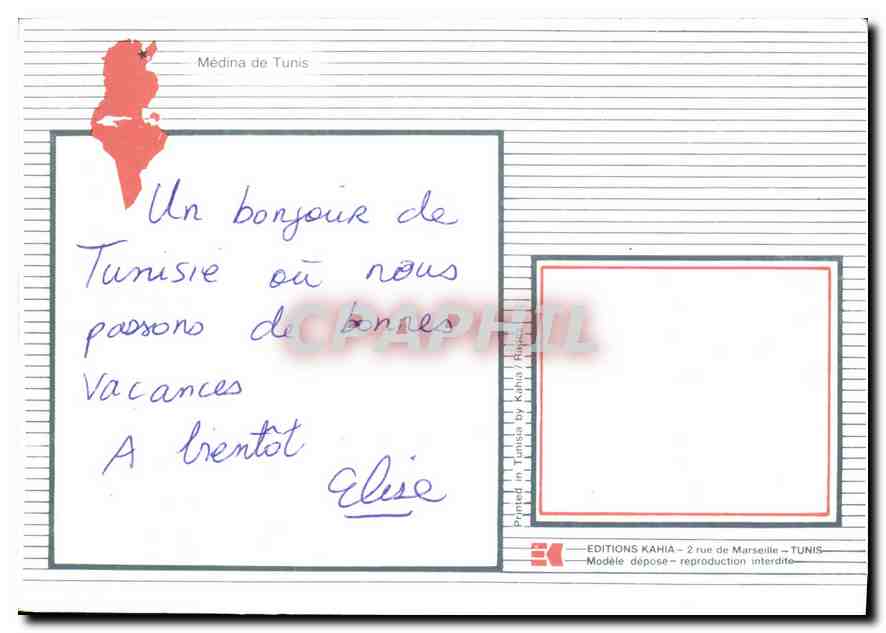 Médina de Tunis
Un bonjour de
Tunisie où nous
passons de bonnes
vacances
A bientôt
Elise
CPAPHIL
Printed in Tunisia by Kahia /
EDITIONS KAHIA – 2 rue de Marseille – TUNIS
Modèle déposé – reproduction interdite